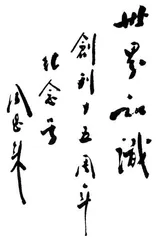 世界知識
創刊十五周年
紀念号
周恩来